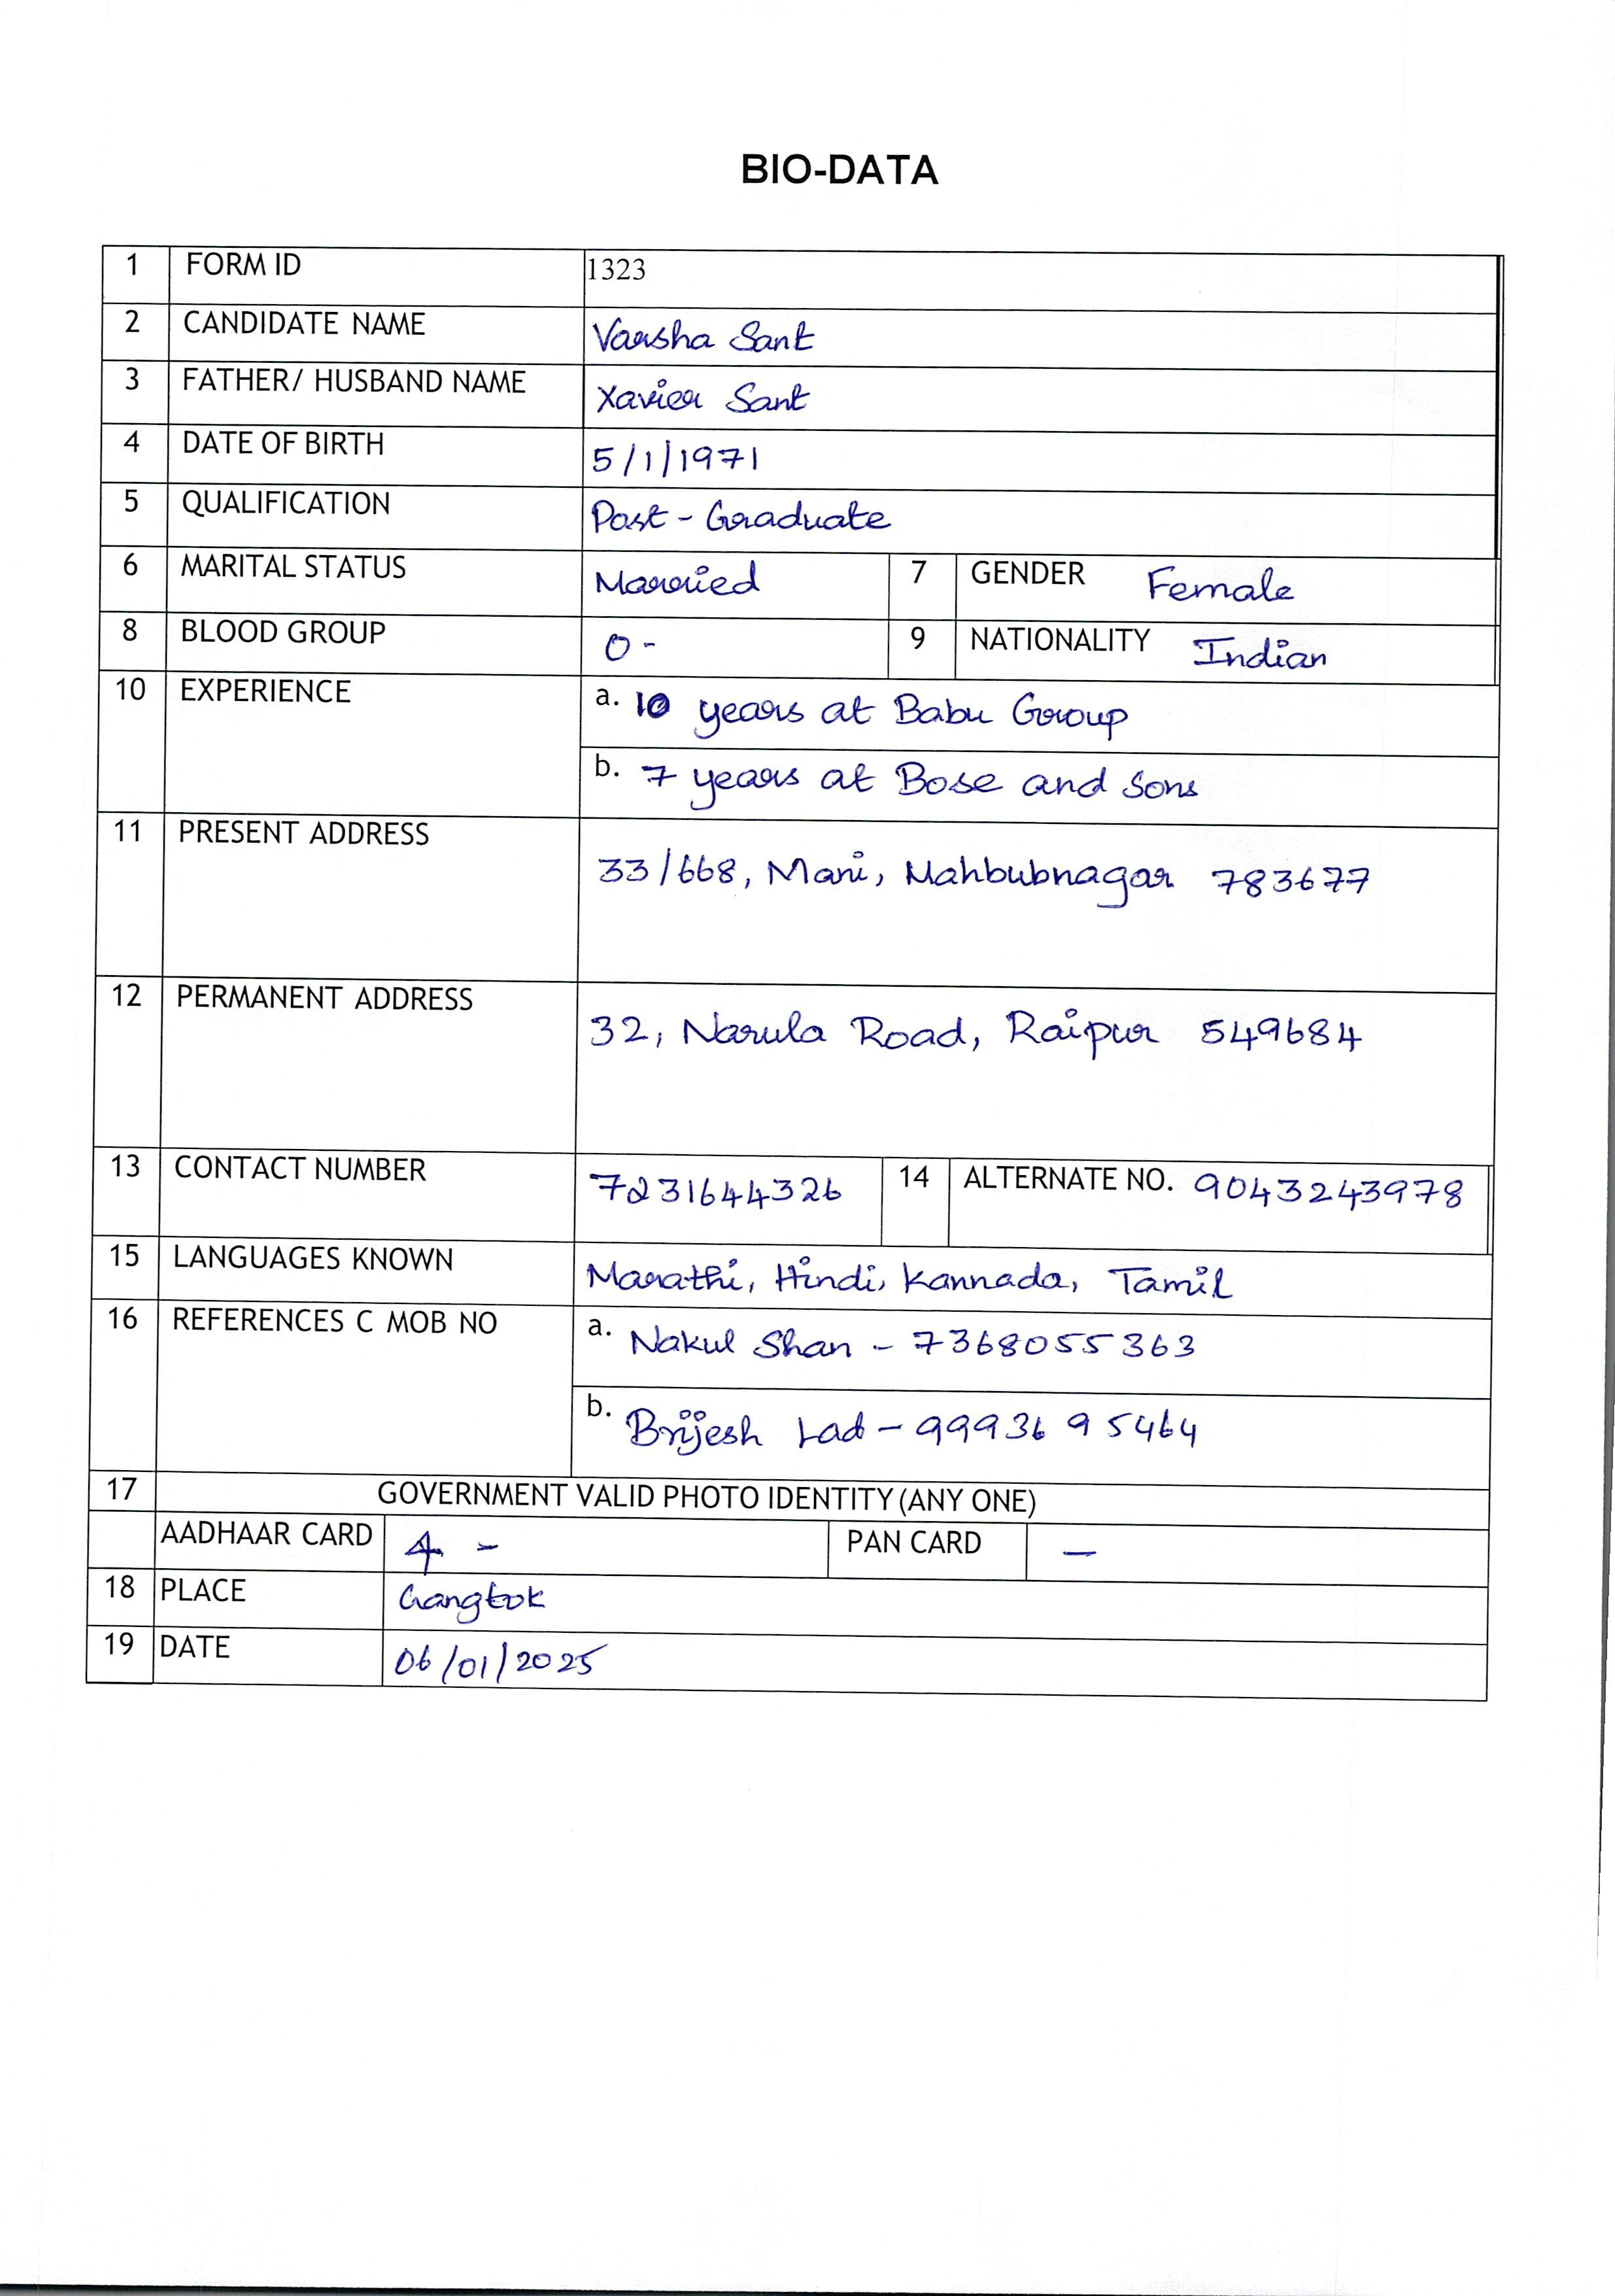 BIO-DATA
1 FORM ID 1323
2 CANDIDATE NAME Varsha Sant
3 FATHER/ HUSBAND NAME Xavier Sant
4 DATE OF BIRTH 5/1/1971
5 QUALIFICATION Post-Graduate
6 MARITAL STATUS Married 7 GENDER Female
8 BLOOD GROUP O- 9 NATIONALITY Indian
10 EXPERIENCE a. 10 years at Babu Group
b. 7 years at Bose and Sons
11 PRESENT ADDRESS 33/668, Mani, Mahbubnagar 783677
12 PERMANENT ADDRESS 32, Narula Road, Raipur 549684
13 CONTACT NUMBER 7231644326 14 ALTERNATE NO. 9043243978
15 LANGUAGES KNOWN Marathi, Hindi, Kannada, Tamil
16 REFERENCES C MOB NO a. Nakul Shan - 7368055363
b. Brijesh Lad - 9993695464
17 GOVERNMENT VALID PHOTO IDENTITY (ANY ONE)
AADHAAR CARD - PAN CARD -
18 PLACE Gangtok
19 DATE 06/01/2025